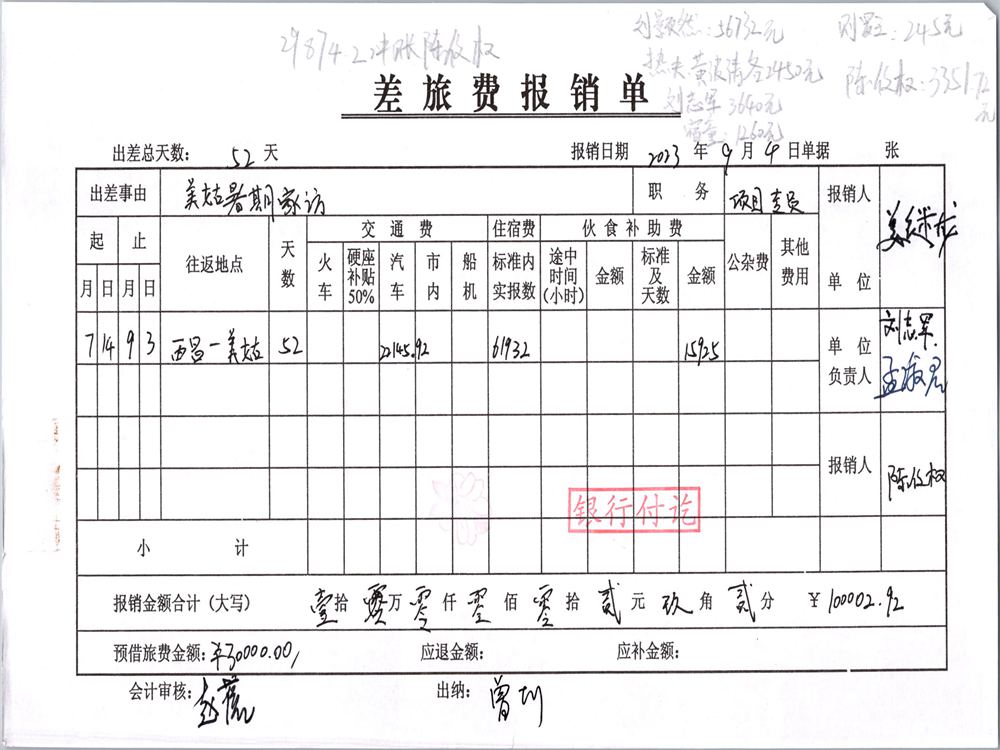 29874.2冲账陈俊权
56732元
245元
2450元
刘志军3640元
1260元
陈俊权:3351.72元
差旅费报销单
出差总天数: 52 天 报销日期 2023 年 9 月 4 日单据 张
出差事由 美姑暑期家访 职务 项目专员 报销人
起 止 往返地点 天数 交通费 住宿费 伙食补助费 公杂费 其他费用 单位
月 日 月 日 火车 硬座补贴50% 汽车 市内 船机 标准内实报数 途中时间(小时) 金额 标准及天数 金额
7 14 9 3 西昌-美姑 52 22145.92 61932 15925 单位负责人 刘志军
报销人 陈俊权
银行付讫
小计
报销金额合计(大写) 壹拾零万零仟零佰零拾贰元玖角贰分 ¥100002.92
预借旅费金额:¥30000.00 应退金额: 应补金额:
会计审核: 出纳: